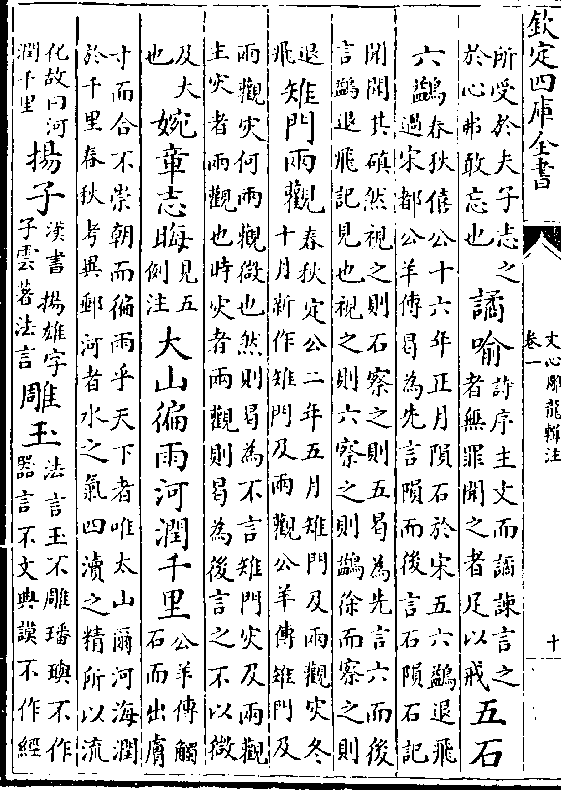 欽定四庫全書
文心雕龍輯注
卷一
十
所受於夫子志之
於心弗敢忘也
譎喻
詩序主文而譎諫言之
者無罪聞之者足以戒
五石
六鷁
春秋僖公十六年正月隕石於宋五六鷁退飛
過宋都公羊傳曷為先言隕而後言石隕石記
聞聞其磌然視之則石察之則五曷為先言六而後
言鷁退飛記見也視之則六察之則鷁徐而察之則
退
飛
雉門兩觀
春秋定公二年五月雉門及兩觀災冬
十月新作雉門及兩觀公羊傳雉門及
兩觀災何兩觀微也然則曷為不言雉門災及兩觀
主災者兩觀也時災者兩觀則曷為後言之不以微
及大
也
婉章志晦
見五
例注
大山徧雨河潤千里
公羊傳觸
石而出膚
寸而合不崇朝而徧雨乎天下者唯太山爾河海潤
於千里春秋考異郵河者水之氣四瀆之精所以流
化故曰河
潤千里
揚子
漢書揚雄字
子雲著法言
雕玉
法言玉不雕璠璵不作
器言不文典謨不作經